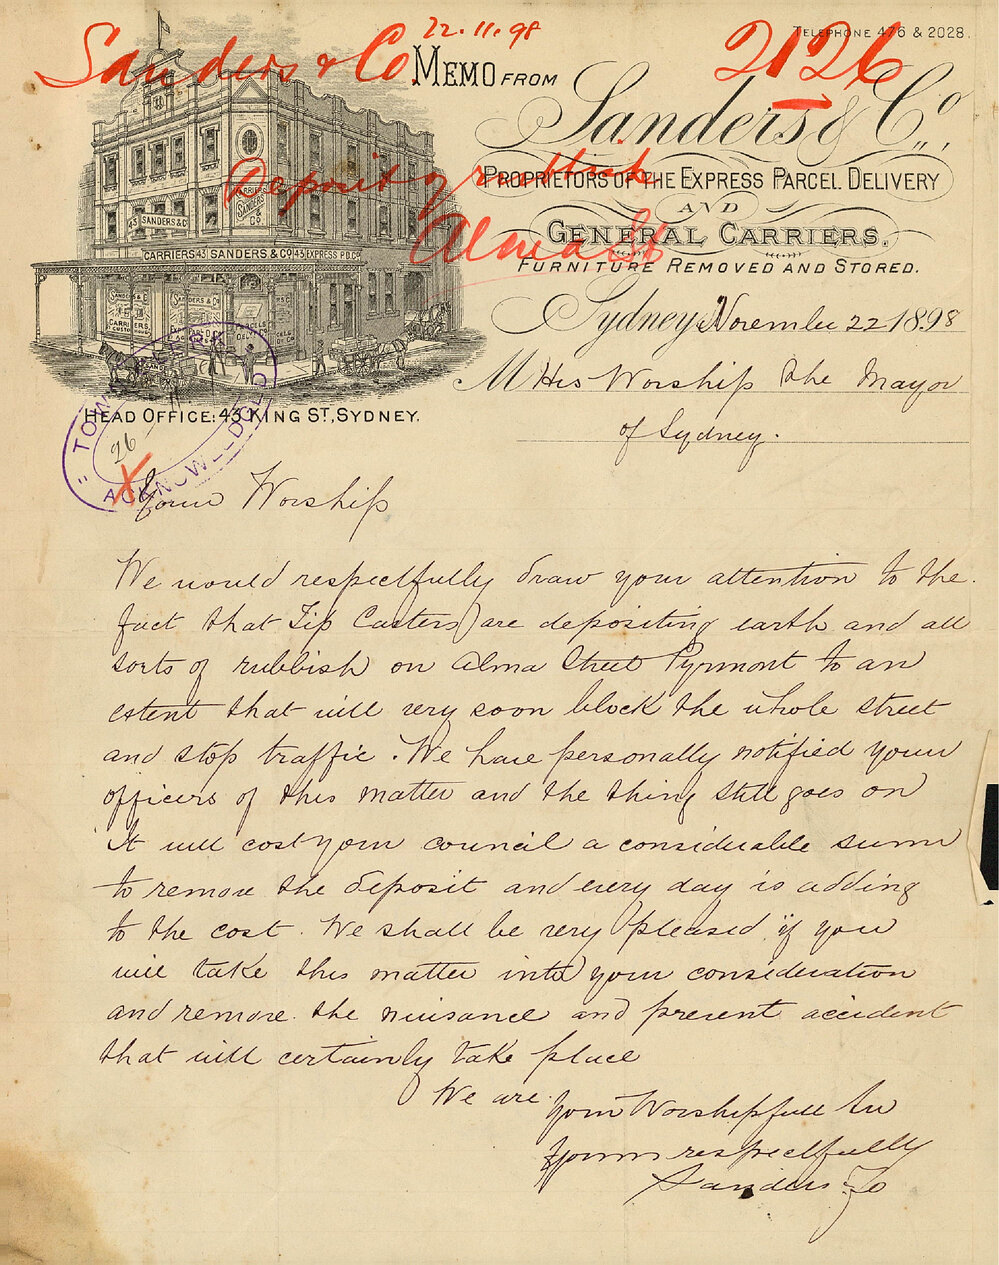 Sanders & Co
22.11.98
2126
TELEPHONE 476 & 2028.
MEMO FROM
Sanders & Co.,
PROPRIETORS OF THE EXPRESS PARCEL DELIVERY
AND
GENERAL CARRIERS.
FURNITURE REMOVED AND STORED.
Deposit of rubbish
Alma St
CARRIERS
SANDERS
& CO.
43 SANDERS & Co
CARRIERS 43 SANDERS & Co 43 EXPRESS P.D. Co
SANDERS & Co
CARRIERS
HEAD OFFICE: 43 KING ST, SYDNEY.
TOWN CLERK
26
ACKNOWLEDGED
X
Sydney November 22 1898
M His Worship the Mayor
of Sydney.
Your Worship
We would respectfully draw your attention to the
fact that Tip Carters are depositing earth and all
sorts of rubbish on Alma Street Pyrmont to an
extent that will very soon block the whole street
and stop traffic. We have personally notified your
officers of this matter and the thing still goes on
It will cost your council a considerable summ
to remove the deposit and every day is adding
to the cost. We shall be very pleased if you
will take this matter into your consideration
and remove the nuisance and prevent accident
that will certainly take place
We are
your Worshipfull
Yours respectfully
Sanders & Co